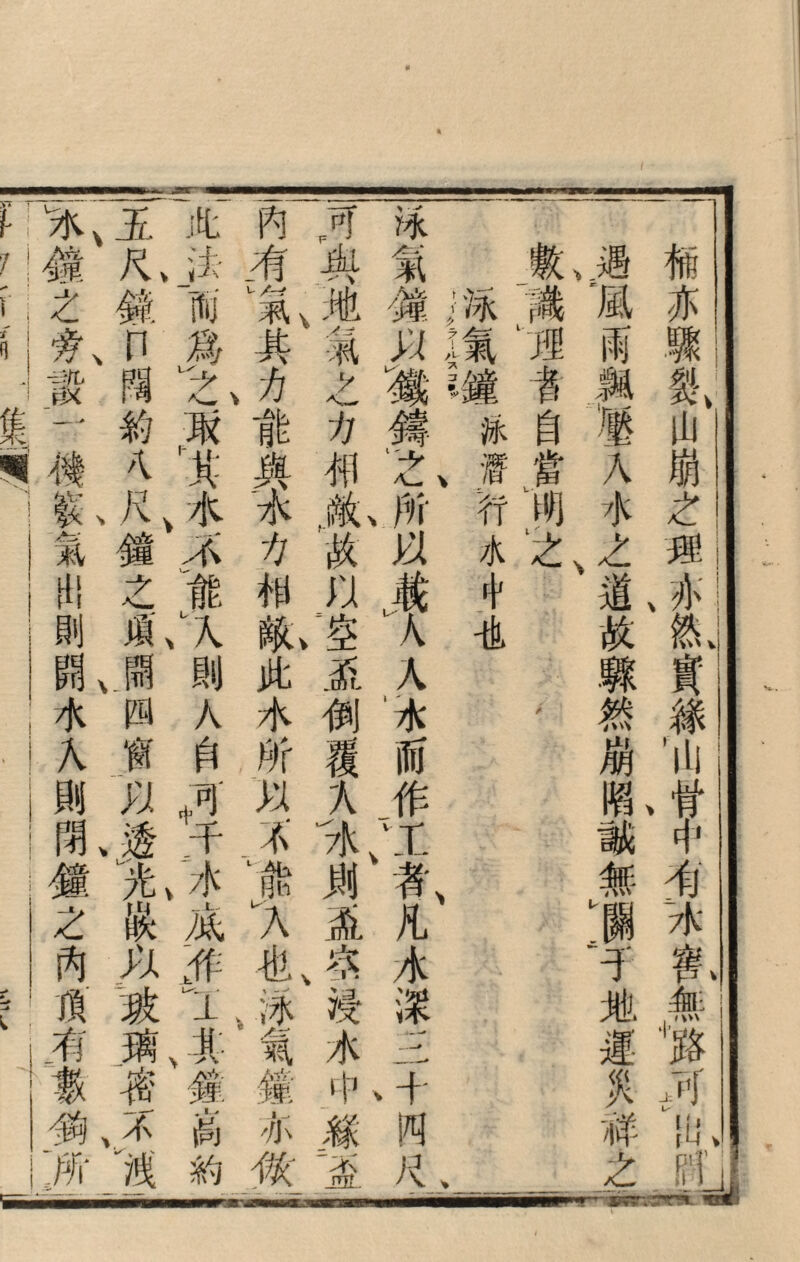 栭亦驟裂、山崩之理亦然、實緣山骨中有水窖、無路可出、間
遇風雨飄壓入水之道、故驟然崩陷、誠無關于地運災祥之
數、識理者自當明之、
泳氣鐘 泳潛行水中也
泳氣鐘以鐵鑄之、所以載人入水而作工者、凡水深三十四尺、
可與地氣之力相敵、故以空盃倒覆入水、則盃空浸水中、緣盃
內有氣、其力能與水力相敵、此水所以不能入也、泳氣鐘亦倣
此法而爲之、取其水不能入則人自可于水底作工、其鐘高約
五尺、鐘口闊約八尺、鐘之項、開四窗以透光、嵌以玻璃、密不洩
水、鐘之旁、設一機竅、氣出則開、水入則閉、鐘之內頂有數鈎、所
集